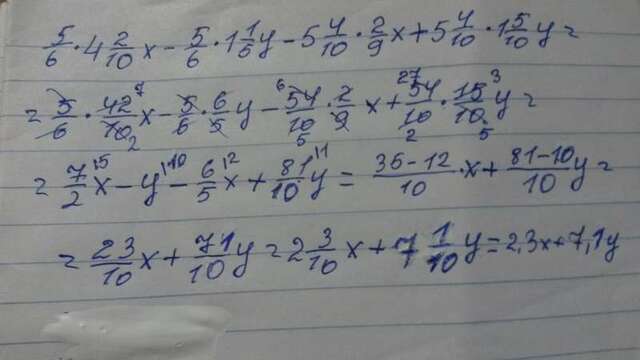 5/6 · 4 2/10 x − 5/6 · 1 1/5 y − 5 4/10 · 2/9 x + 5 4/10 · 1 5/10 y =
= 5/6 · 42⁷/10₂ x − 5/6 · 6/5 y − ⁶54/10₅ · 2/9 x + ²⁷54/10₂ · 15³/10₅ y =
= 7/2 ¹⁵ x − y ¹⁰ − 6/5 ¹² x + 81/10 ¹¹ y = 35 − 12/10 · x + 81 − 10/10 y =
= 23/10 x + 71/10 y = 2 3/10 x + 7 1/10 y = 2,3x + 7,1y